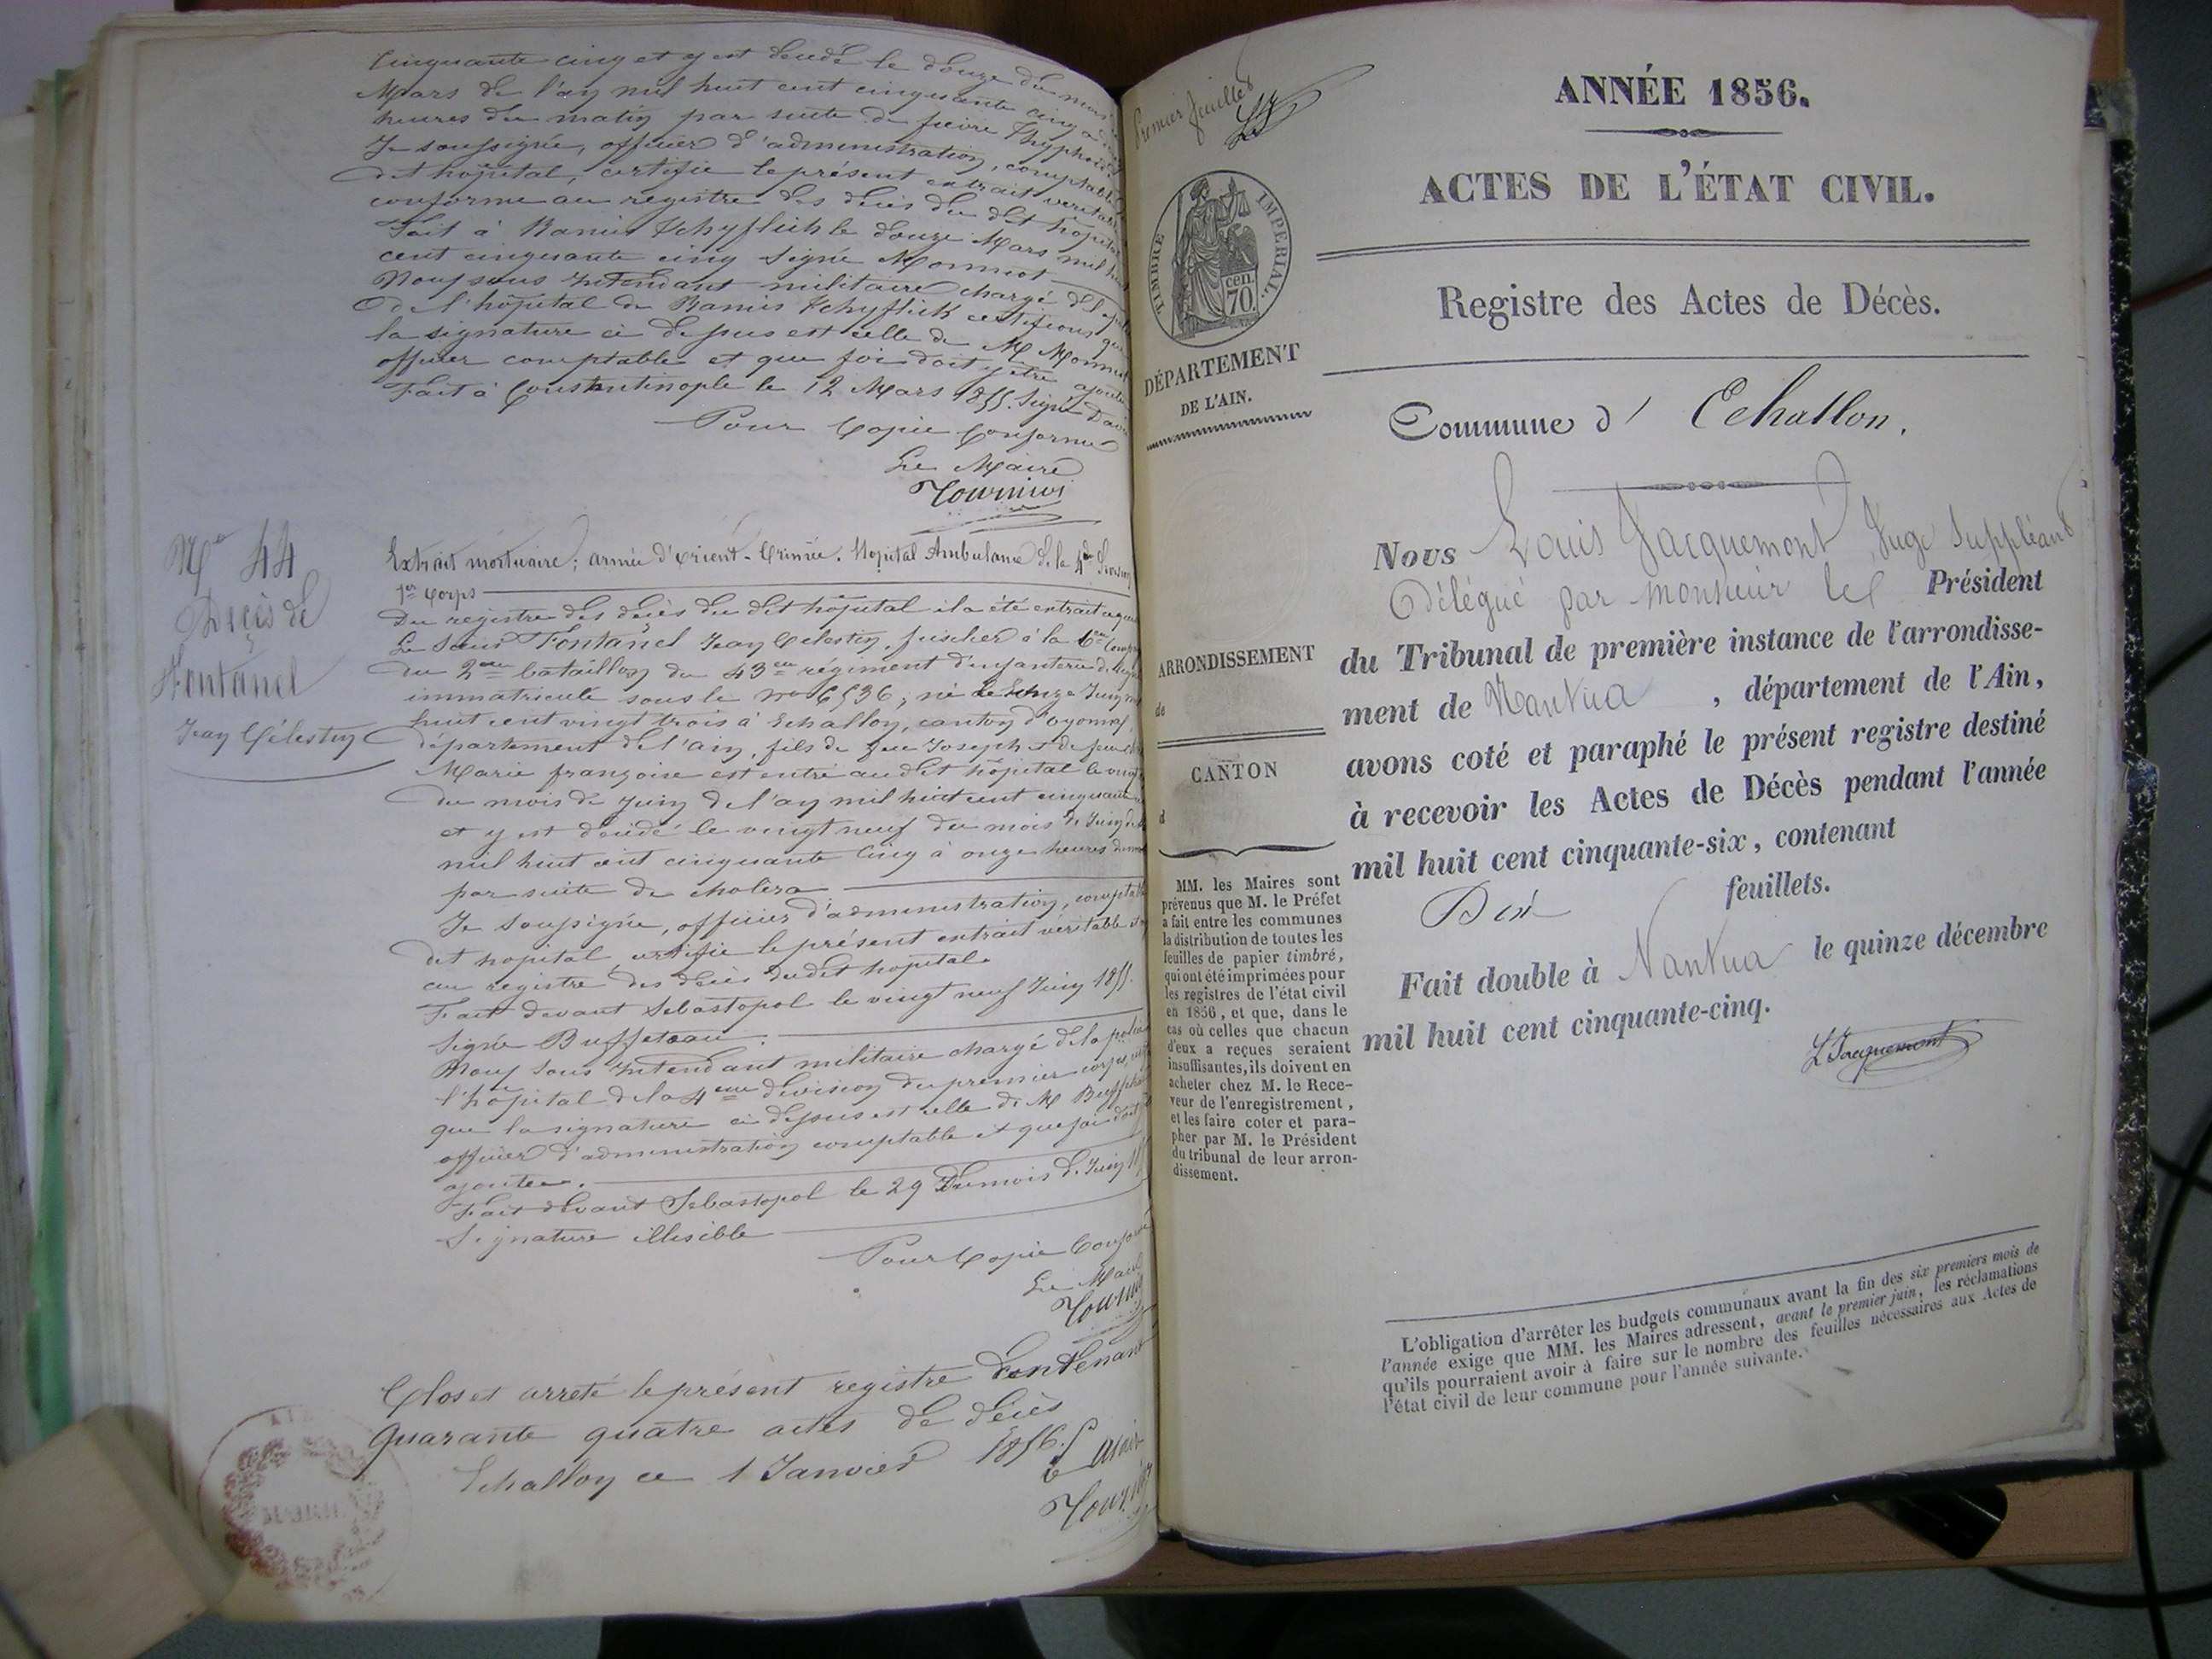 Cinquante cinq et y est décédé le douze du mois
Mars de l'an mil huit cent cinquante cinq à
heures du matin par suite de fièvre thyphoïde
Je soussigné, officier d'administration, comptable
dit hôpital, certifie le présent extrait véritable
conforme au registre des décès du dit hôpital
Fait à Ramis Tchyflick le douze Mars mil huit
cent cinquante cinq signé Monniot
Nous sous Intendant militaire chargé de la
de l'hôpital de Ramis Tchyflick certifions que
la signature ci dessus est celle de M Monniot
officier comptable et que foi doit y être ajoutée
Fait à Constantinople le 12 Mars 1855. Signé
Pour Copie Conforme
Le Maire
Tournier
No 44
Décès de
Fontanel
Jean Célestin
Extrait mortuaire; armée d'orient - Crimée. Hopital Ambulance de la 4e Division
1er Corps
Du registre des décès du dit hôpital il a été extrait
Le Sieur Fontanel Jean Celestin, fusilier à la 6me
du 2me bataillon du 43me régiment d'infanterie de
immatriculé sous le no 6536, né le Juin
huit cent vingt trois à Echallon, canton d'oyonnax
département de l'ain, fils de feu Joseph et de
Marie françoise est entré au dit hôpital le
du mois de Juin de l'an mil huit cent cinquante
et y est décédé le vingt neuf du mois de Juin de
mil huit cent cinquante Cinq à onze heures du
par suite de choléra
Je soussigné, officier d'administration, comptable
dit hopital, certifie le présent extrait véritable et
au registre des décès du dit hopital.
Fait devant Sébastopol le vingt neuf Juin 1855.
Signé Buffeteau.
Nous Sous Intendant militaire chargé de la police
l'hôpital de la 4eme division du premier corps,
que la signature ci dessus est celle de M
officier d'administration comptable et que foi doit
ajoutée.
Fait devant Sébastopol le 29 du mois de Juin
Signature illisible
Pour Copie Conforme
Le Maire
Tournier
Clos et arreté le présent registre Contenant
quarante quatre actes de décès
Echallon ce 1 Janvier 1856.
Le Maire
Tournier
Premier feuillet
LJ
TIMBRE IMPÉRIAL.
70 cen
DÉPARTEMENT
DE L'AIN.
ARRONDISSEMENT
de
CANTON
d
MM. les Maires sont
prévenus que M. le Préfet
a fait entre les communes
la distribution de toutes les
feuilles de papier timbré,
qui ont été imprimées pour
les registres de l'état civil
en 1856, et que, dans le
cas où celles que chacun
d'eux a reçues seraient
insuffisantes, ils doivent en
acheter chez M. le Rece-
veur de l'enregistrement,
et les faire coter et para-
pher par M. le Président
du tribunal de leur arron-
dissement.
ANNÉE 1856.
ACTES DE L'ÉTAT CIVIL.
Registre des Actes de Décès.
Commune d' Echallon.
Nous Louis Jacquemont, Juge Suppléant
Délégué par monsieur le Président
du Tribunal de première instance de l'arrondisse-
ment de Nantua, département de l'Ain,
avons coté et paraphé le présent registre destiné
à recevoir les Actes de Décès pendant l'année
mil huit cent cinquante-six, contenant
Dix feuillets.
Fait double à Nantua le quinze décembre
mil huit cent cinquante-cinq.
L Jacquemont
L'obligation d'arrêter les budgets communaux avant la fin des six premiers mois de
l'année exige que MM. les Maires adressent, avant le premier juin, les réclamations
qu'ils pourraient avoir à faire sur le nombre des feuilles nécessaires aux Actes de
l'état civil de leur commune pour l'année suivante.